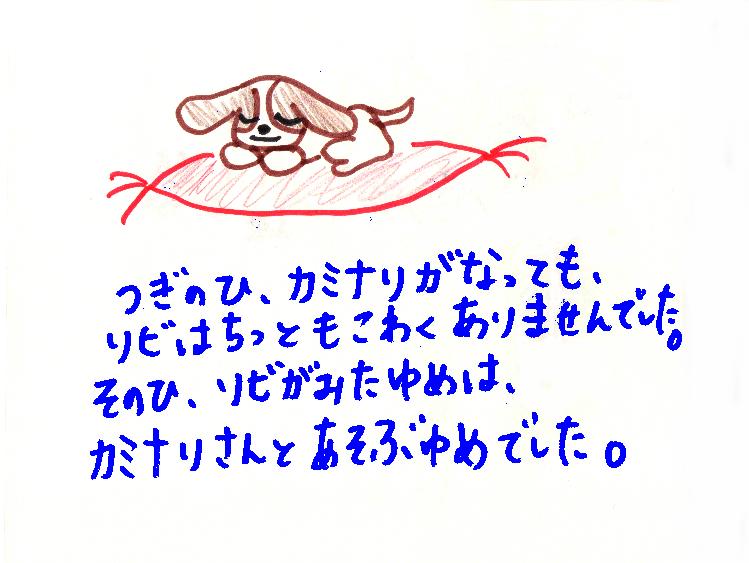 つぎのひ、カミナリがなっても、
リビはちっともこわくありませんでした。
そのひ、リビがみたゆめは、
カミナリさんとあそぶゆめでした。